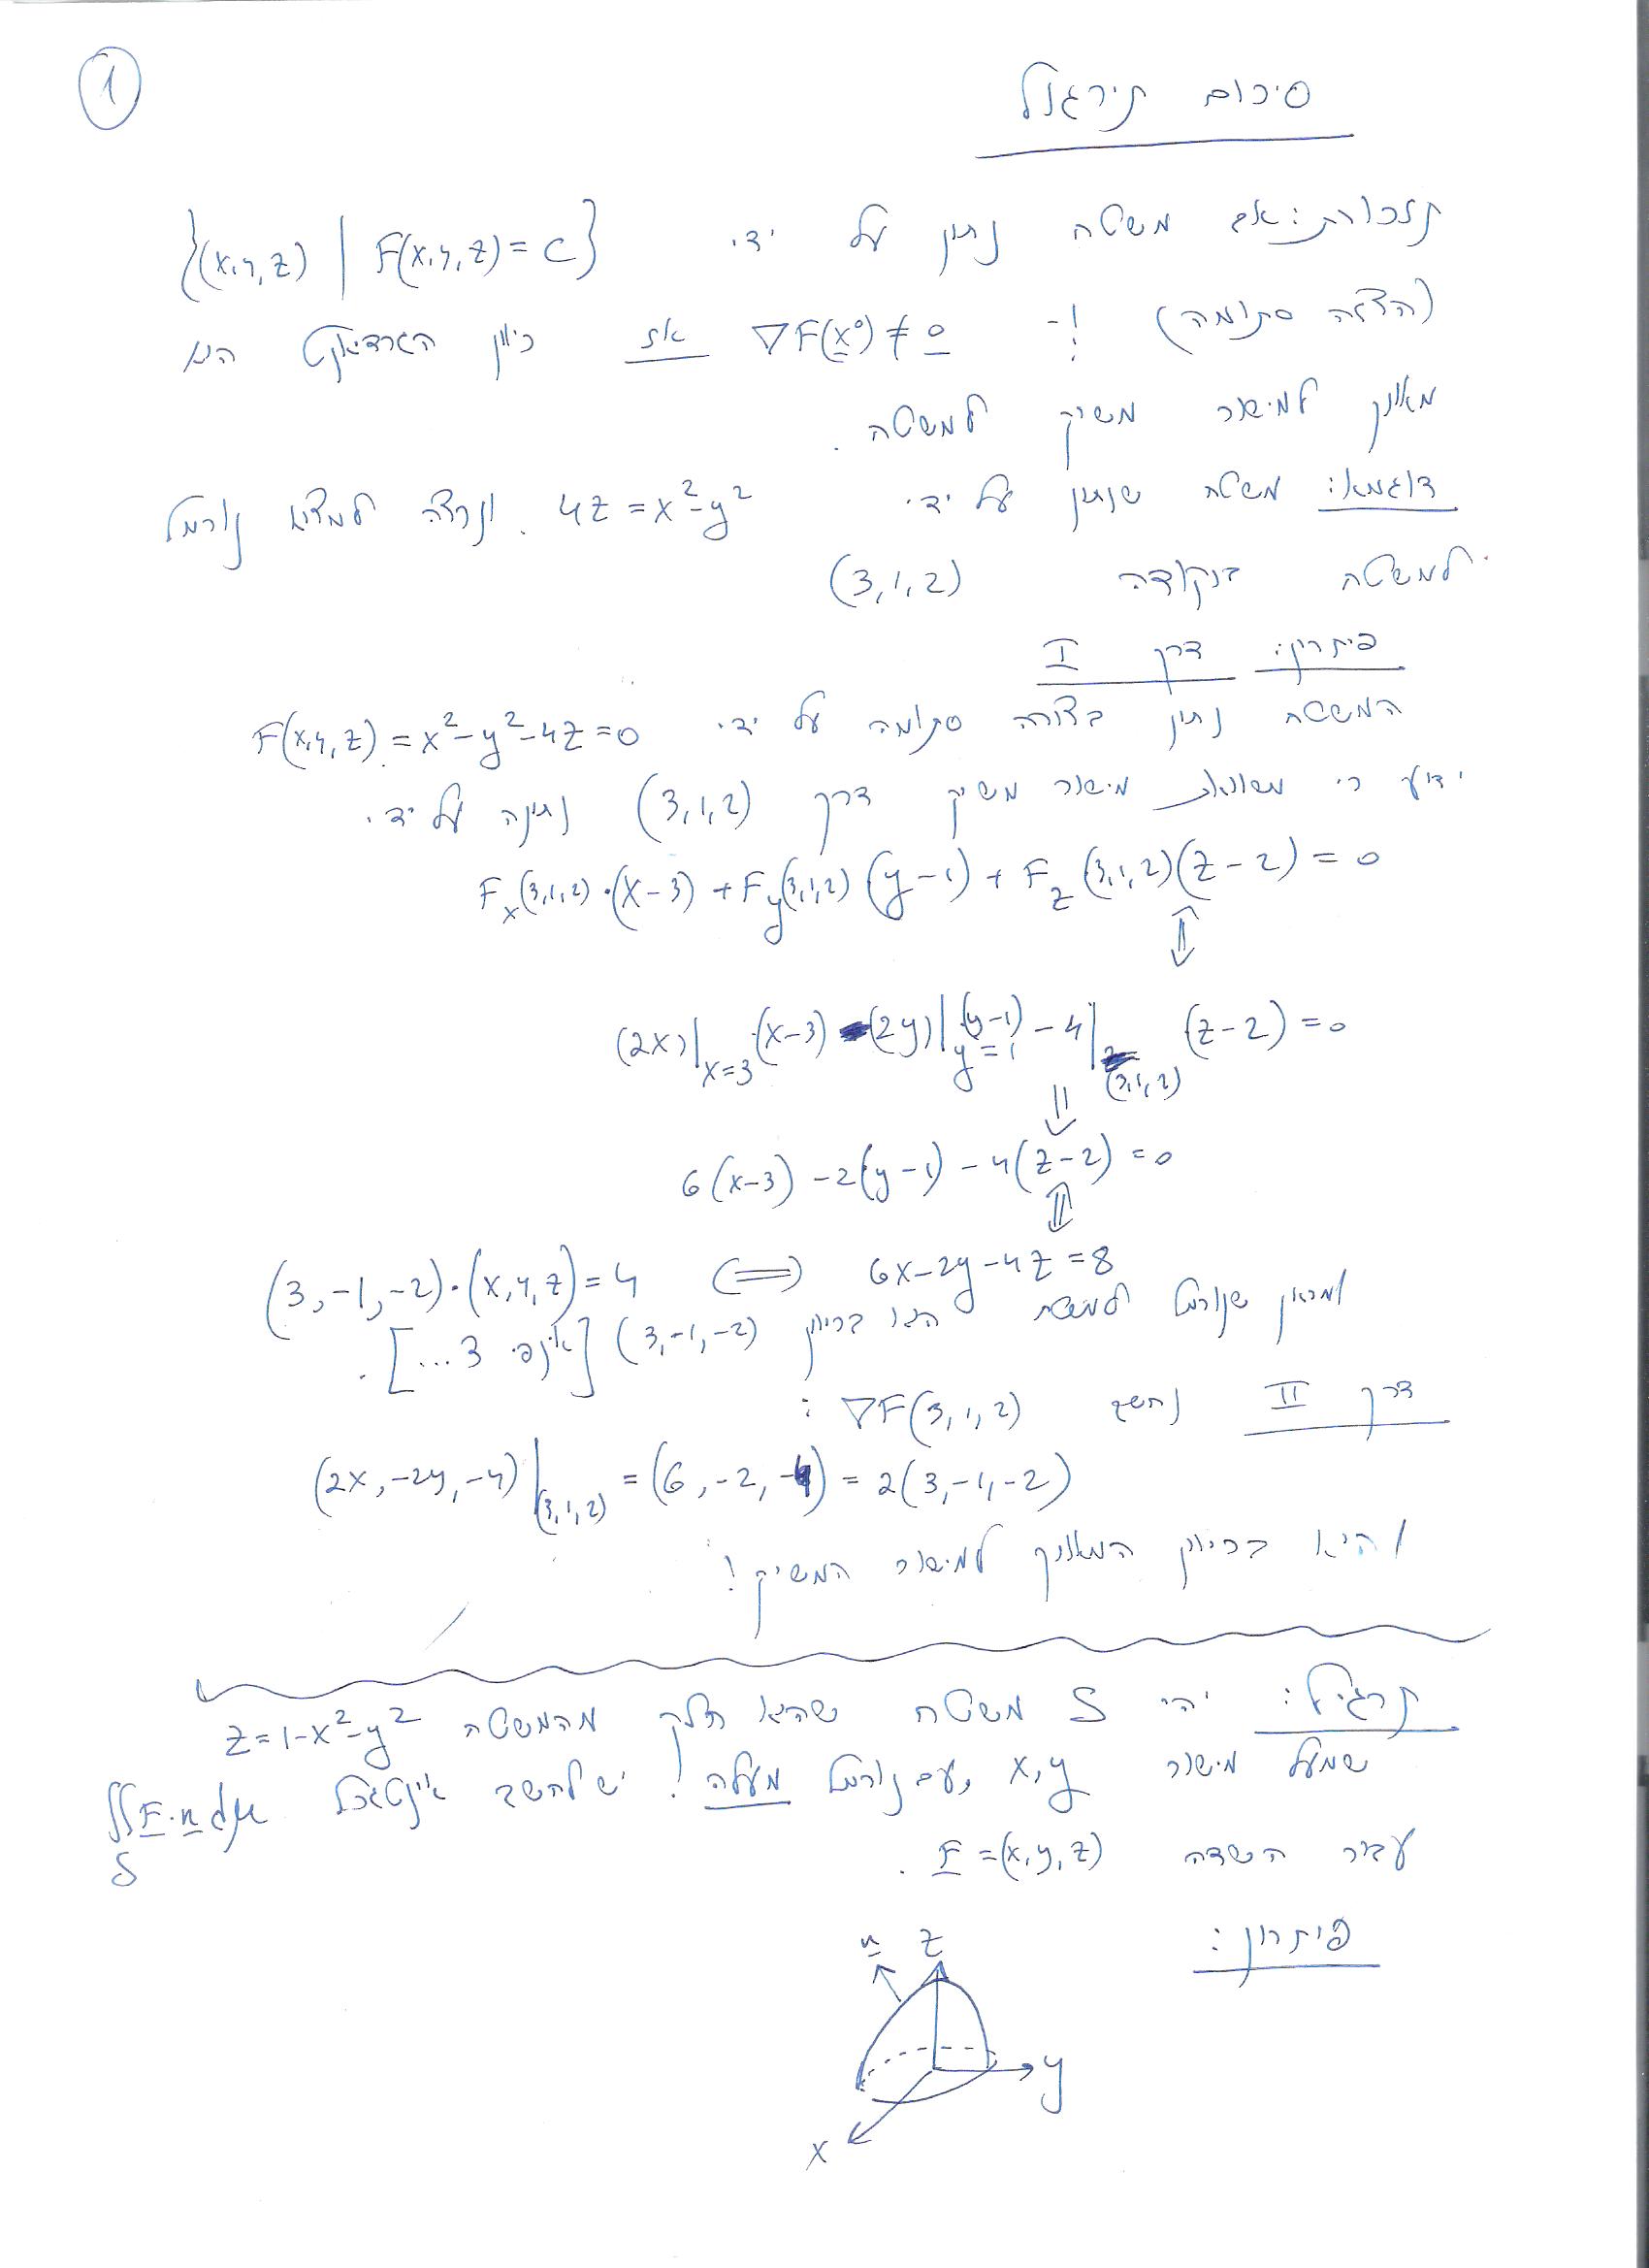 1
סיכום תירגול
תזכורת: אם משטח נתון על ידי {(x,y,z) | F(x,y,z) = c}
(הצגה סתומה) ו- ∇F(x⁰) ≠ 0 אז כיוון הגרדיאנט הוא
מאונך למישור משיק למשטח.
דוגמא: משטח שנתון על ידי 4z = x²-y². נרצה למצוא נורמל
למשטח בנקודה (3,1,2)
פיתרון: דרך I
המשטח נתון בצורה סתומה על ידי F(x,y,z) = x²-y²-4z=0
ידוע כי משוואת מישור משיק דרך (3,1,2) נתונה על ידי
F_x(3,1,2)·(x-3) + F_y(3,1,2)(y-1) + F_z(3,1,2)(z-2) = 0
⇕
(2x)|_{x=3}·(x-3) - (2y)|_{y=1}(y-1) - 4|_{(3,1,2)} (z-2) = 0
⇓
6(x-3) - 2(y-1) - 4(z-2) = 0
⇕
6x-2y-4z = 8 ⟺ (3,-1,-2)·(x,y,z) = 4
ומכאן שנורמל למשטח הינו בכיוון (3,-1,-2) [אינפי 3...].
דרך II נחשב ∇F(3,1,2) :
(2x,-2y,-4)|_{(3,1,2)} = (6,-2,-4) = 2(3,-1,-2)
והיא בכיוון המאונך למישור המשיק!
תרגיל: יהי S משטח שהוא חלק מהמשטח z=1-x²-y²
שמעל מישור x,y, עם נורמל מעלה! יש לחשב אינטגרל ∬_S F·n dμ
עבור השדה F = (x,y,z).
פיתרון:
n z
y
x